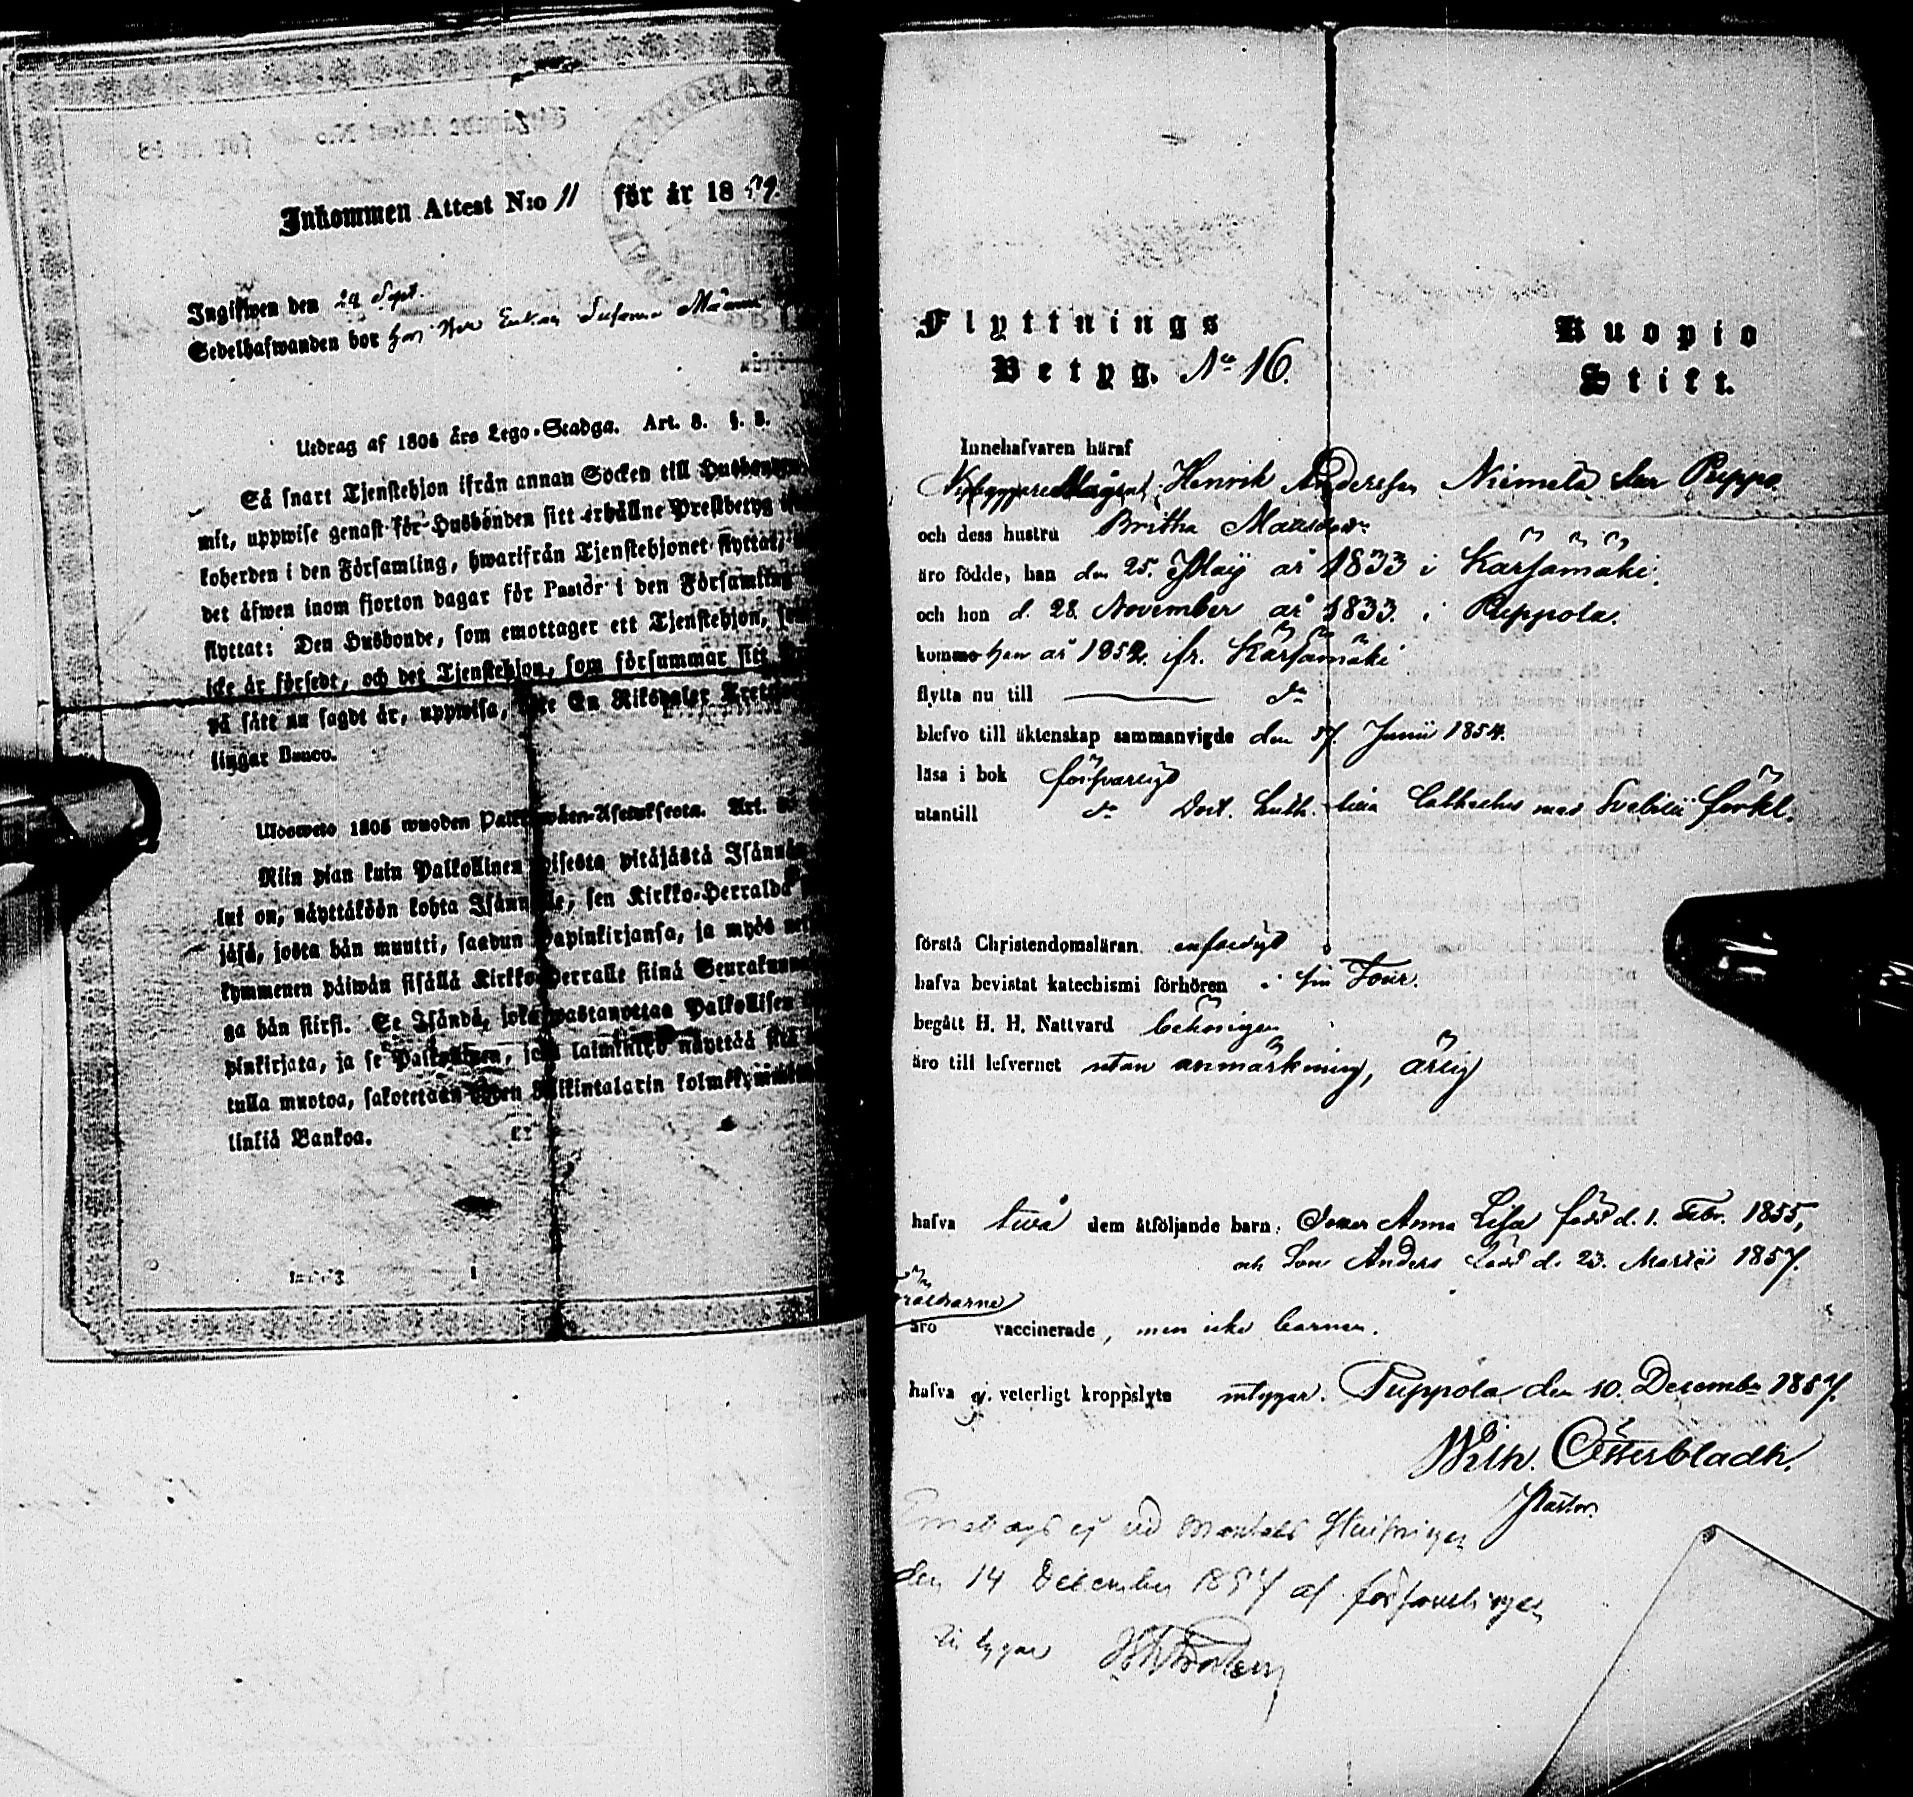 Inkommen Attest N:o 11 för år 1859.
Ingifwen den 29 Sept.
Sedelhafwanden bor hos Enkan Susanna
Utdrag af 1805 års Lego-Stadga. Art. 8. §. 8.
Så snart Tjenstehjon ifrån annan Socken till Husbonden
mit, uppwise genast för Husbonden sitt erhållne Prestbetyg
koherden i den Församling, hwarifrån Tjenstehjonet flyttat,
det äfwen inom fjorton dagar för Pastor i den Församling
flyttat: Den Husbonde, som emottager ett Tjenstehjon,
icke är försedt, och det Tjenstehjon, som försummar sitt
på sätt nu sagdt är, uppwisa, En Riksdaler
lingar Banco.
Ulosweto 1805 wuoden Palkowäen-Asetuksesta. Art.
Niin pian kuin Palkollinen toisesta pitäjästä Isännän
lut on, näyttäköön kohta Isännälle, sen Kirkko-Herralda
jäsä, josta hän muutti, saadun Papinkirjansa, ja myös
kymmenen päiwän sisällä Kirkko-Herralle siinä Seurakunna
ga hän siirsi. Se Isändä, joka wastanottaa Palkollisen
pinkirjata, ja se Palkollinen, joka laiminlyö näyttää sitä
tulla muotoa, sakotetaan Riikintalarin kolmekymmen
linkiä Bankoa.
Flyttnings
Betyg. No 16.
Kuopio
Stift.
Innehafvaren häraf
Nybyggaremågen Henrik Andersson Niemelä Puppo
och dess hustru Britha Mattsdr
äro födde, han den 25. Maij år 1833 i Kärsämäki.
och hon d. 28. November år 1833. i Puppola.
kommo han år 1852. fr. Kärsämäki
flytta nu till do
blefvo till äktenskap sammanvigde den 17. Junii 1854.
läsa i bok försvarligt
utantill do Doct. Luth. lilla Catheches med Svebilii förkl.
förstå Christendomsläran enfaldigt
hafva bevistat katechismi förhören i sin Tour.
begått H. H. Nattvard behörigen
äro till lefvernet utan anmärkning, ärlig
hafva twå dem åtföljande barn: Dotter Anna Lisa född d. 1. Febr. 1855,
och Son Anders född d. 23. Martii 1857.
Föräldrarne
äro vaccinerade, men icke barnen.
hafva ej. veterligt kroppslyte intygar. Puppola den 10. December 1857.
Wilh. Österbladh.
Pastor.
ej vid
den 14 December 1857 af församlingen
intygar